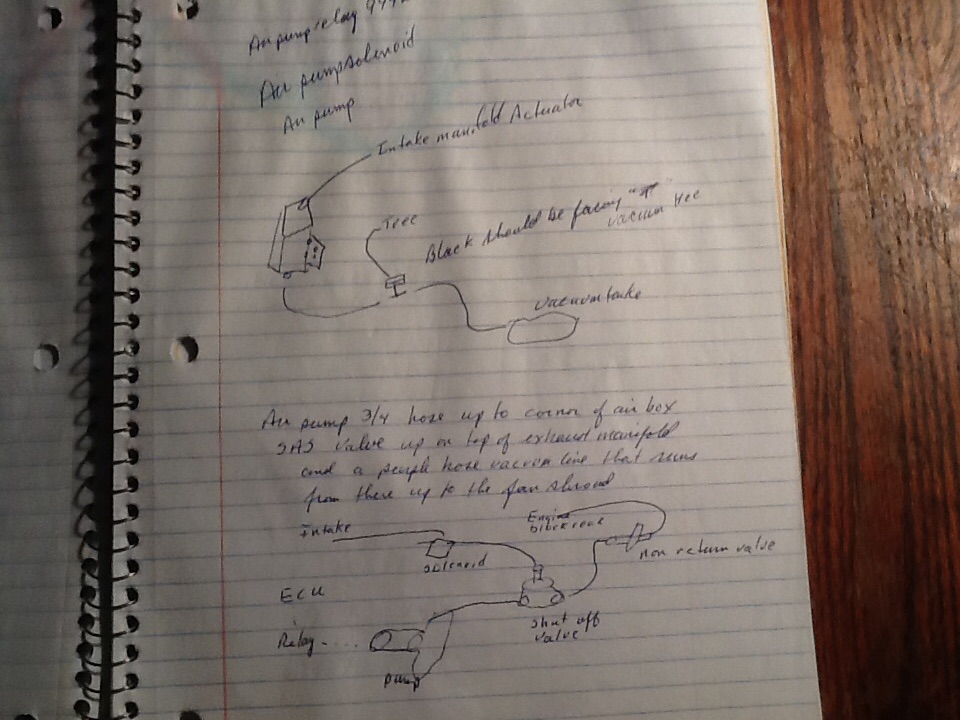 Air pump relay
Air pump solenoid
Air pump
Intake manifold Actuator
Tree
Black should be facing
vacuum tree
vacuum tanke
Air pump 3/4 hose up to corner of air box
SAS valve up on top of exhaust manifold
and a purple hose vacuum line that runs
from there up to the fan shroud
Intake
Engine
block
solenoid
non return valve
ECU
shut off
valve
Relay - ....
pump